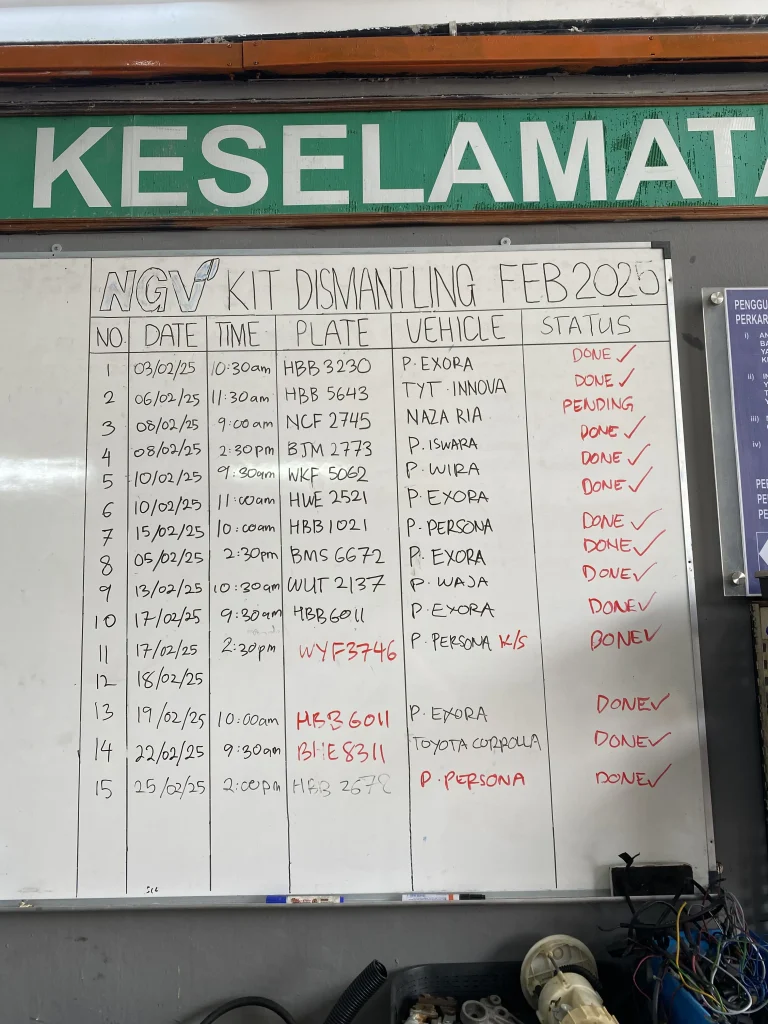 KESELAMATA
NGV KIT DISMANTLING FEB 2025
NO. DATE TIME PLATE VEHICLE STATUS
1 03/02/25 10:30am HBB 3230 P. EXORA DONE ✓
2 06/02/25 11:30am HBB 5643 TYT. INNOVA DONE ✓
3 08/02/25 9:00am NCF 2745 NAZA RIA PENDING
4 08/02/25 2:30pm BJM 2773 P. ISWARA DONE ✓
5 10/02/25 9:30am WKF 5062 P. WIRA DONE ✓
6 10/02/25 11:00am HWE 2521 P. EXORA DONE ✓
7 15/02/25 10:00am HBB 1021 P. PERSONA DONE ✓
8 05/02/25 2:30pm BMS 6672 P. EXORA DONE ✓
9 13/02/25 10:30am WUT 2137 P. WAJA DONE ✓
10 17/02/25 9:30am HBB 6011 P. EXORA DONE ✓
11 17/02/25 2:30pm WYF3746 P. PERSONA K/S DONE ✓
12 18/02/25
13 19/02/25 10:00am HBB 6011 P. EXORA DONE ✓
14 22/02/25 9:30am BHE 8311 TOYOTA CORROLLA DONE ✓
15 25/02/25 2:00pm HBB 2678 P. PERSONA DONE ✓
PENGGU
PERKAR
i) AN
BA
YA
ii) IN
iii)
iv)
PE
PE
PE